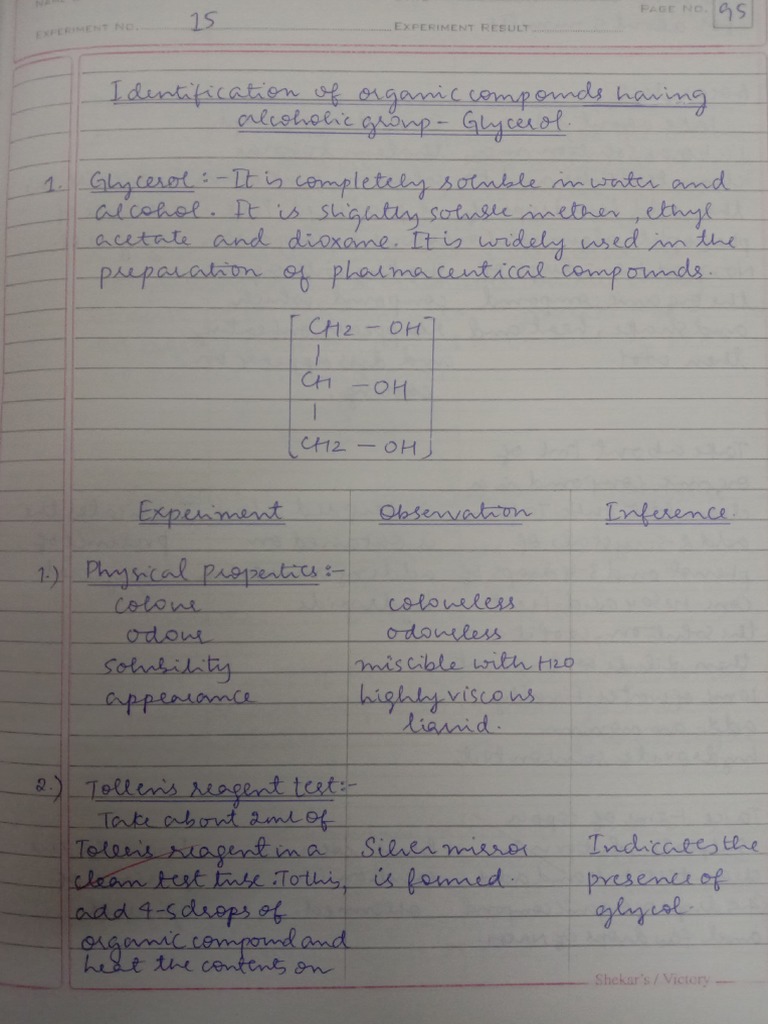 EXPERIMENT NO. 15 EXPERIMENT RESULT PAGE NO. 95
Identification of organic compounds having
alcoholic group - Glycerol.
1. Glycerol :- It is completely soluble in water and
alcohol. It is slightly soluble in ether, ethyl
acetate and dioxane. It is widely used in the
preparation of pharmaceutical compounds.
CH2 - OH
|
CH - OH
|
CH2 - OH
Experiment Observation Inference.
1.) Physical properties :-
colour colourless
odour odourless
solubility miscible with H2O
appearance highly viscous
liquid.
2.) Tollen's reagent test :-
Take about 2ml of
Tollen's reagent in a Silver mirror Indicates the
clean test tube. To this, is formed. presence of
add 4-5 drops of glycol.
organic compound and
heat the contents on
Shekar's / Victory